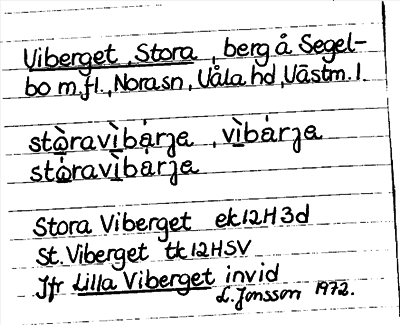 Viberget, Stora, berg å Segel-
bo m.fl., Nora sn, Våla hd, Västm. l.
stòravìbárja, vìbárja
stóravìbárja
Stora Viberget ek 12H3d
St. Viberget tk 12HSV
Jfr Lilla Viberget invid
L. Jonsson 1972.